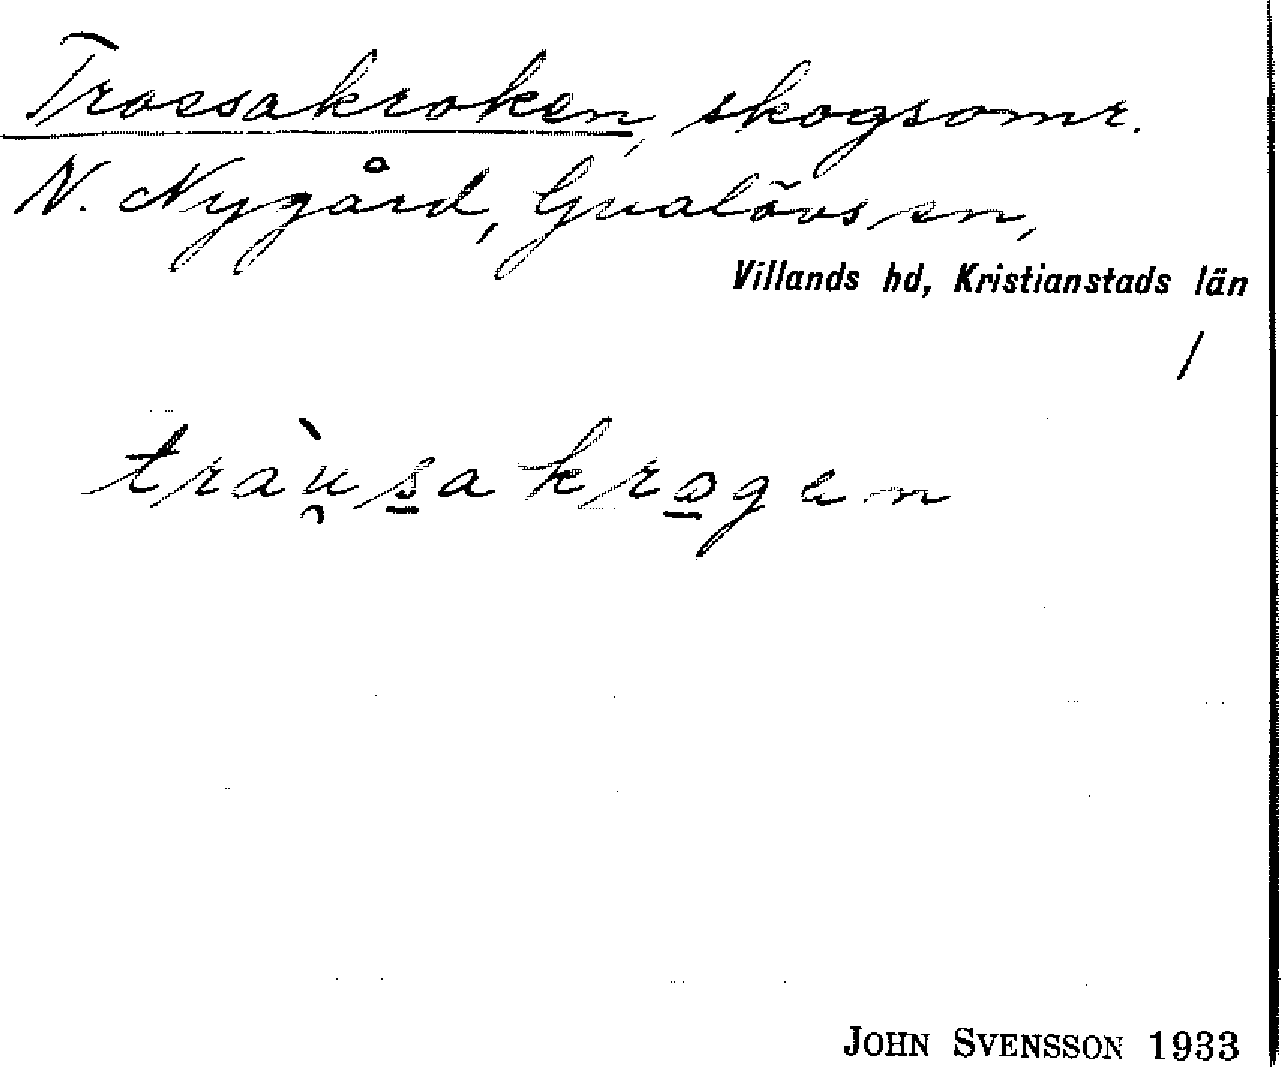 Trossakroken, skogsomr.
N. Nygård, Gualövs sn,
Villands hd, Kristianstads län
/
tràu̯sakrogen
JOHN SVENSSON 1933